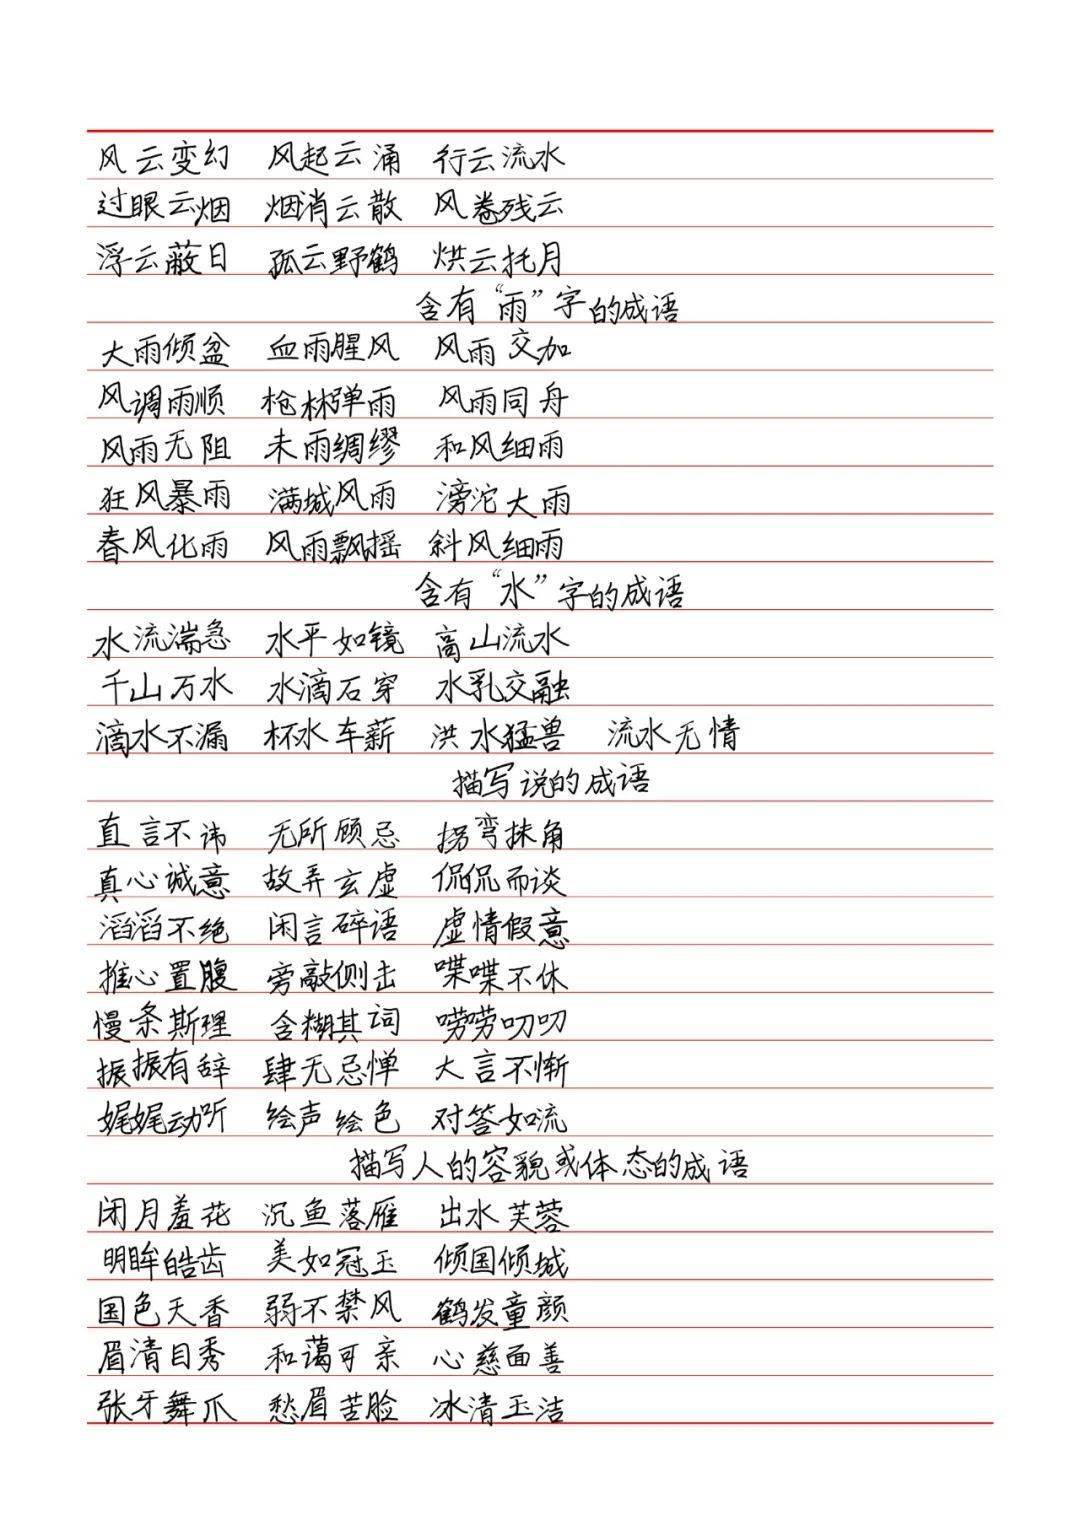 风云变幻 风起云涌 行云流水
过眼云烟 烟消云散 风卷残云
浮云蔽日 孤云野鹤 烘云托月
含有“雨”字的成语
大雨倾盆 血雨腥风 风雨交加
风调雨顺 枪林弹雨 风雨同舟
风雨无阻 未雨绸缪 和风细雨
狂风暴雨 满城风雨 滂沱大雨
春风化雨 风雨飘摇 斜风细雨
含有“水”字的成语
水流湍急 水平如镜 高山流水
千山万水 水滴石穿 水乳交融
滴水不漏 杯水车薪 洪水猛兽 流水无情
描写说的成语
直言不讳 无所顾忌 拐弯抹角
真心诚意 故弄玄虚 侃侃而谈
滔滔不绝 闲言碎语 虚情假意
推心置腹 旁敲侧击 喋喋不休
慢条斯理 含糊其词 唠唠叨叨
振振有辞 肆无忌惮 大言不惭
娓娓动听 绘声绘色 对答如流
描写人的容貌或体态的成语
闭月羞花 沉鱼落雁 出水芙蓉
明眸皓齿 美如冠玉 倾国倾城
国色天香 弱不禁风 鹤发童颜
眉清目秀 和蔼可亲 心慈面善
张牙舞爪 愁眉苦脸 冰清玉洁